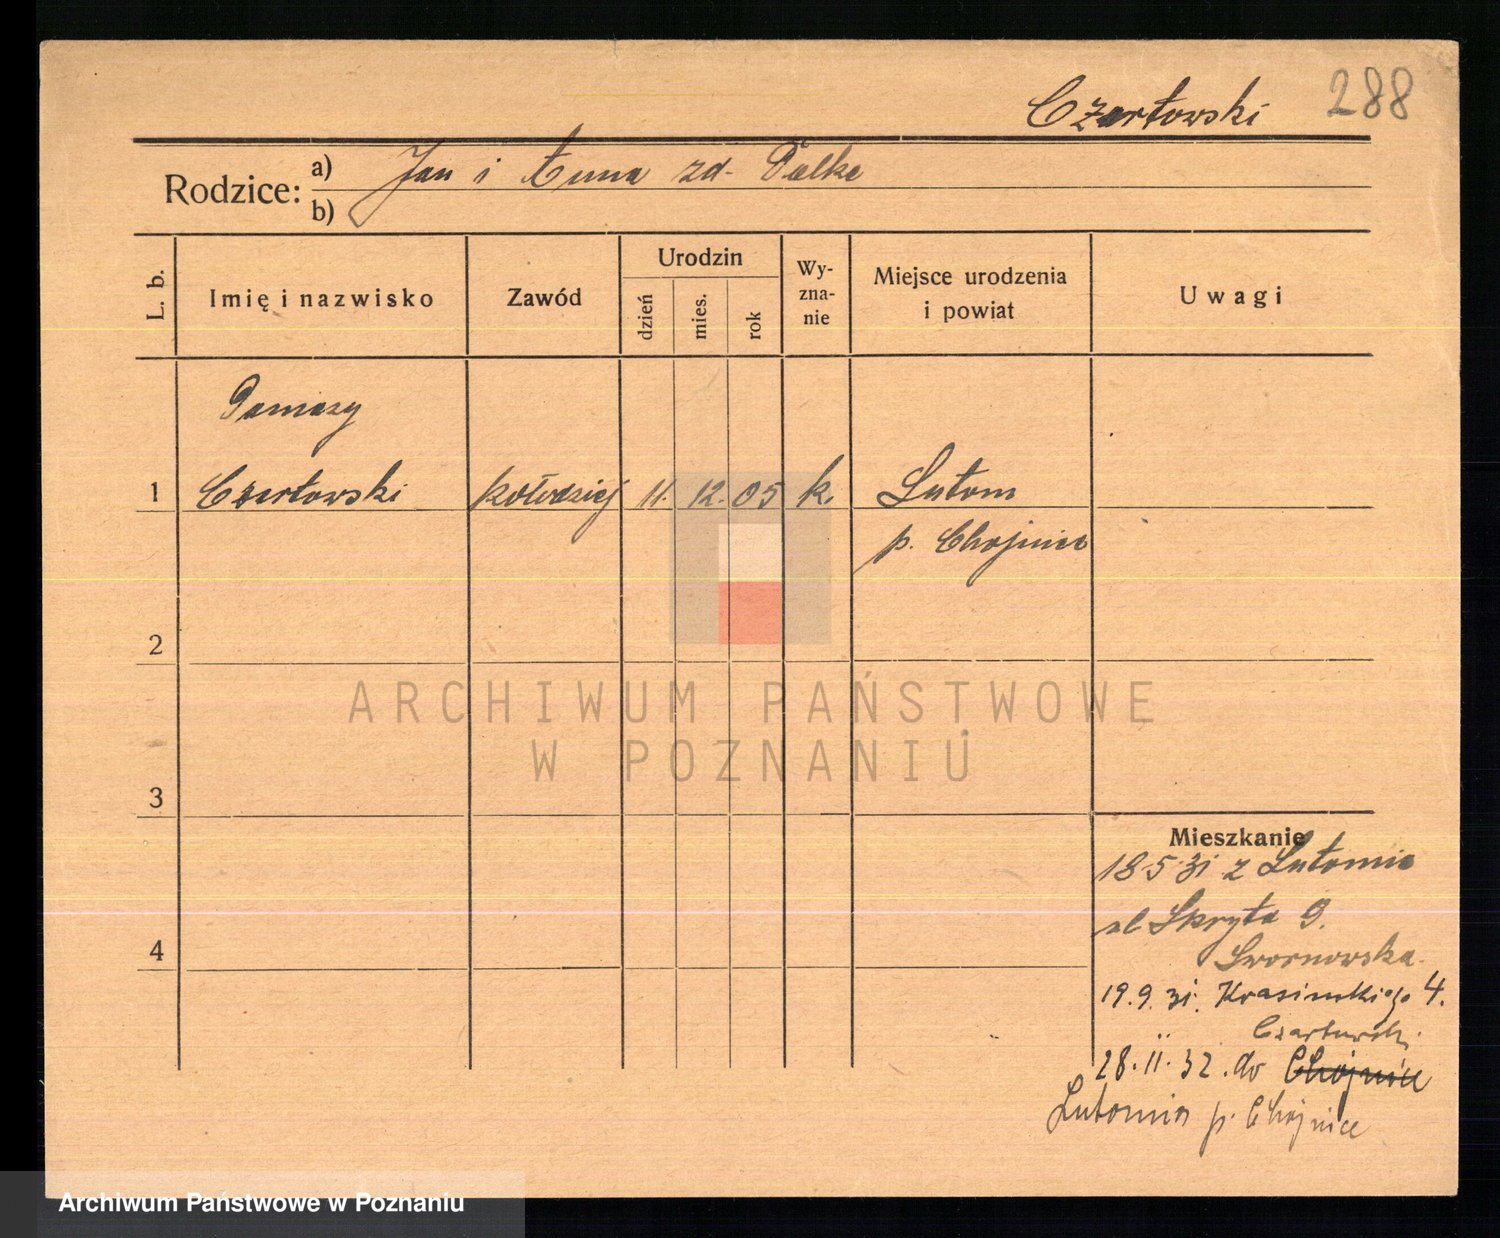 288
Czartowski
Rodzice:
a) Jan i Anna zd. Palke
b)
L. b.
Imię i nazwisko
Zawód
Urodzin
dzień
mies.
rok
Wy-
zna-
nie
Miejsce urodzenia
i powiat
Uwagi
Damazy
1 Czartowski kołodziej 11. 12. 05 k. Lutom
p. Chojnice
2
ARCHIWUM PAŃSTWOWE
W POZNANIU
3
Mieszkanie
18.5.31 z Lutomia
ul Skryta 9.
Swornowska
4
19.9.31. Krasińskiego 4.
Czartowski
28.II.32. do Chojnice
Lutomia p. Chojnice
Archiwum Państwowe w Poznaniu